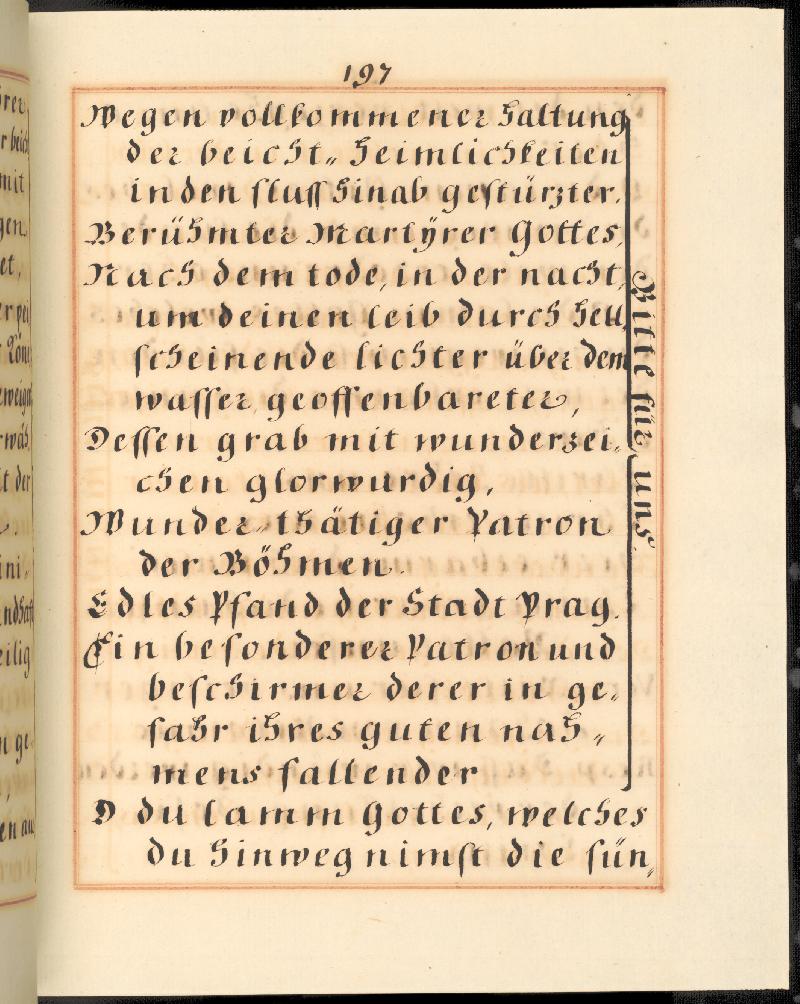 197
Wegen vollkommener haltung
der beicht„ heimlichkeiten
in den fluss hinab gestürzter.
Berühmter Martÿrer Gottes,
Nach dem tode, in der nacht,
um deinen leib durch hell„
scheinende lichter über dem
wasser geoffenbareter,
Dessen grab mit wunderzei„
chen glorwurdig,
Wunder„thätiger Patron
der Böhmen.
Edles Pfand der Stadt Prag.
Ein besonderer Patron und
beschirmer derer in ge„
fahr ihres guten nah„
mens fallender
Bitte für uns.
O du lamm Gottes, welches
du hinweg nimst die sün„